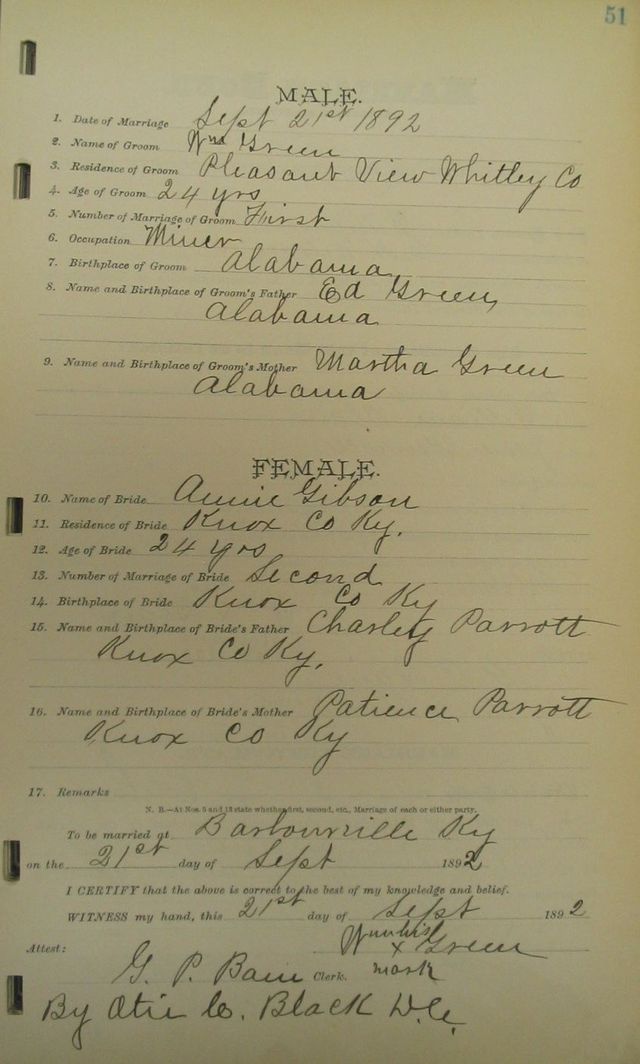 51
MALE.
1. Date of Marriage Sept 21st 1892
2. Name of Groom Wm Green
3. Residence of Groom Pleasant View Whitley Co
4. Age of Groom 24 yrs
5. Number of Marriage of Groom First
6. Occupation Miner
7. Birthplace of Groom Alabama
8. Name and Birthplace of Groom's Father Ed Green,
Alabama
9. Name and Birthplace of Groom's Mother Martha Green
Alabama
FEMALE.
10. Name of Bride Annie Gibson
11. Residence of Bride Knox Co Ky.
12. Age of Bride 24 yrs
13. Number of Marriage of Bride Second
14. Birthplace of Bride Knox Co Ky
15. Name and Birthplace of Bride's Father Charley Parrott
Knox Co Ky.
16. Name and Birthplace of Bride's Mother Patience Parrott
Knox Co Ky
17. Remarks
N. B.—At Nos. 5 and 13 state whether first, second, etc., Marriage of each or either party.
To be married at Barbourville Ky
on the 21st day of Sept 1892
I CERTIFY that the above is correct to the best of my knowledge and belief.
WITNESS my hand, this 21st day of Sept 1892
Wm his x Green
Attest:
G. P. Bain Clerk. mark
By Otis C. Black D.C.